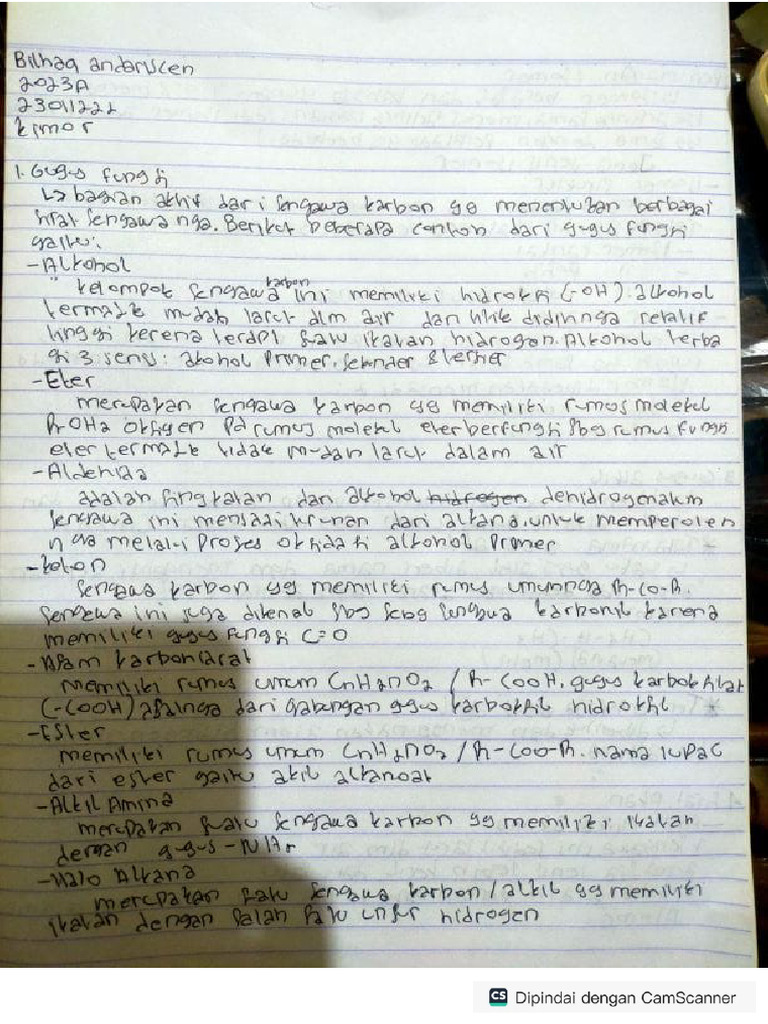 Bilhaq andariscen
2023A
23011222
kimor
1. Gugus fungsi
↳ bagian aktif dari sengawa karbon yg menentukan berbagai
sifat sengawa nga. Berikut beberapa contoh dari gugus fungsi
yaitu:
- Alkohol
kelompok sengawa karbon ini memiliki hidroksi (-OH). alkohol
termasuk mudah larut dlm air dan titik didihnga relatif
tinggi kerena terdpt suatu ikatan hidrogen. Alkohol terba
gi 3 jenis: alkohol primer, sekunder & tersier
- Eter
merupakan sengawa karbon yg memiliki rumus molekul
oksigen pd rumus molekul eter berfungsi sbg rumus fungsi
eter termasuk tidak mudah larut dalam air
- Aldehida
adalah singkatan dari alkohol hidrogen dehidrogenatum
sengawa ini menjadi turunan dari alkana. untuk memperoleh
n ga melalui proses oksidasi alkohol primer
- keton
sengawa karbon yg memiliki rumus umumnga R-CO-R.
sengawa ini juga dikenal sbg sengawa karbonil karena
memiliki gugus fungsi C=O
- Asam karboksilat
memiliki rumus umum CnH2nO2 / R-COOH. gugus karboksilat
(-COOH) asalnga dari gabungan ggus karboksil hidroksil
- Ester
memiliki rumus umum CnH2nO2 / R-COO-R. nama IUPAC
dari ester yaitu alkil alkanoat
- Alkil Amina
merupakan suatu sengawa karbon yg memiliki ikatan
dengan gugus
- Halo Alkana
merupakan suatu sengawa karbon / alkil yg memiliki
ikatan dengan salah satu unsur hidrogen
CS Dipindai dengan CamScanner